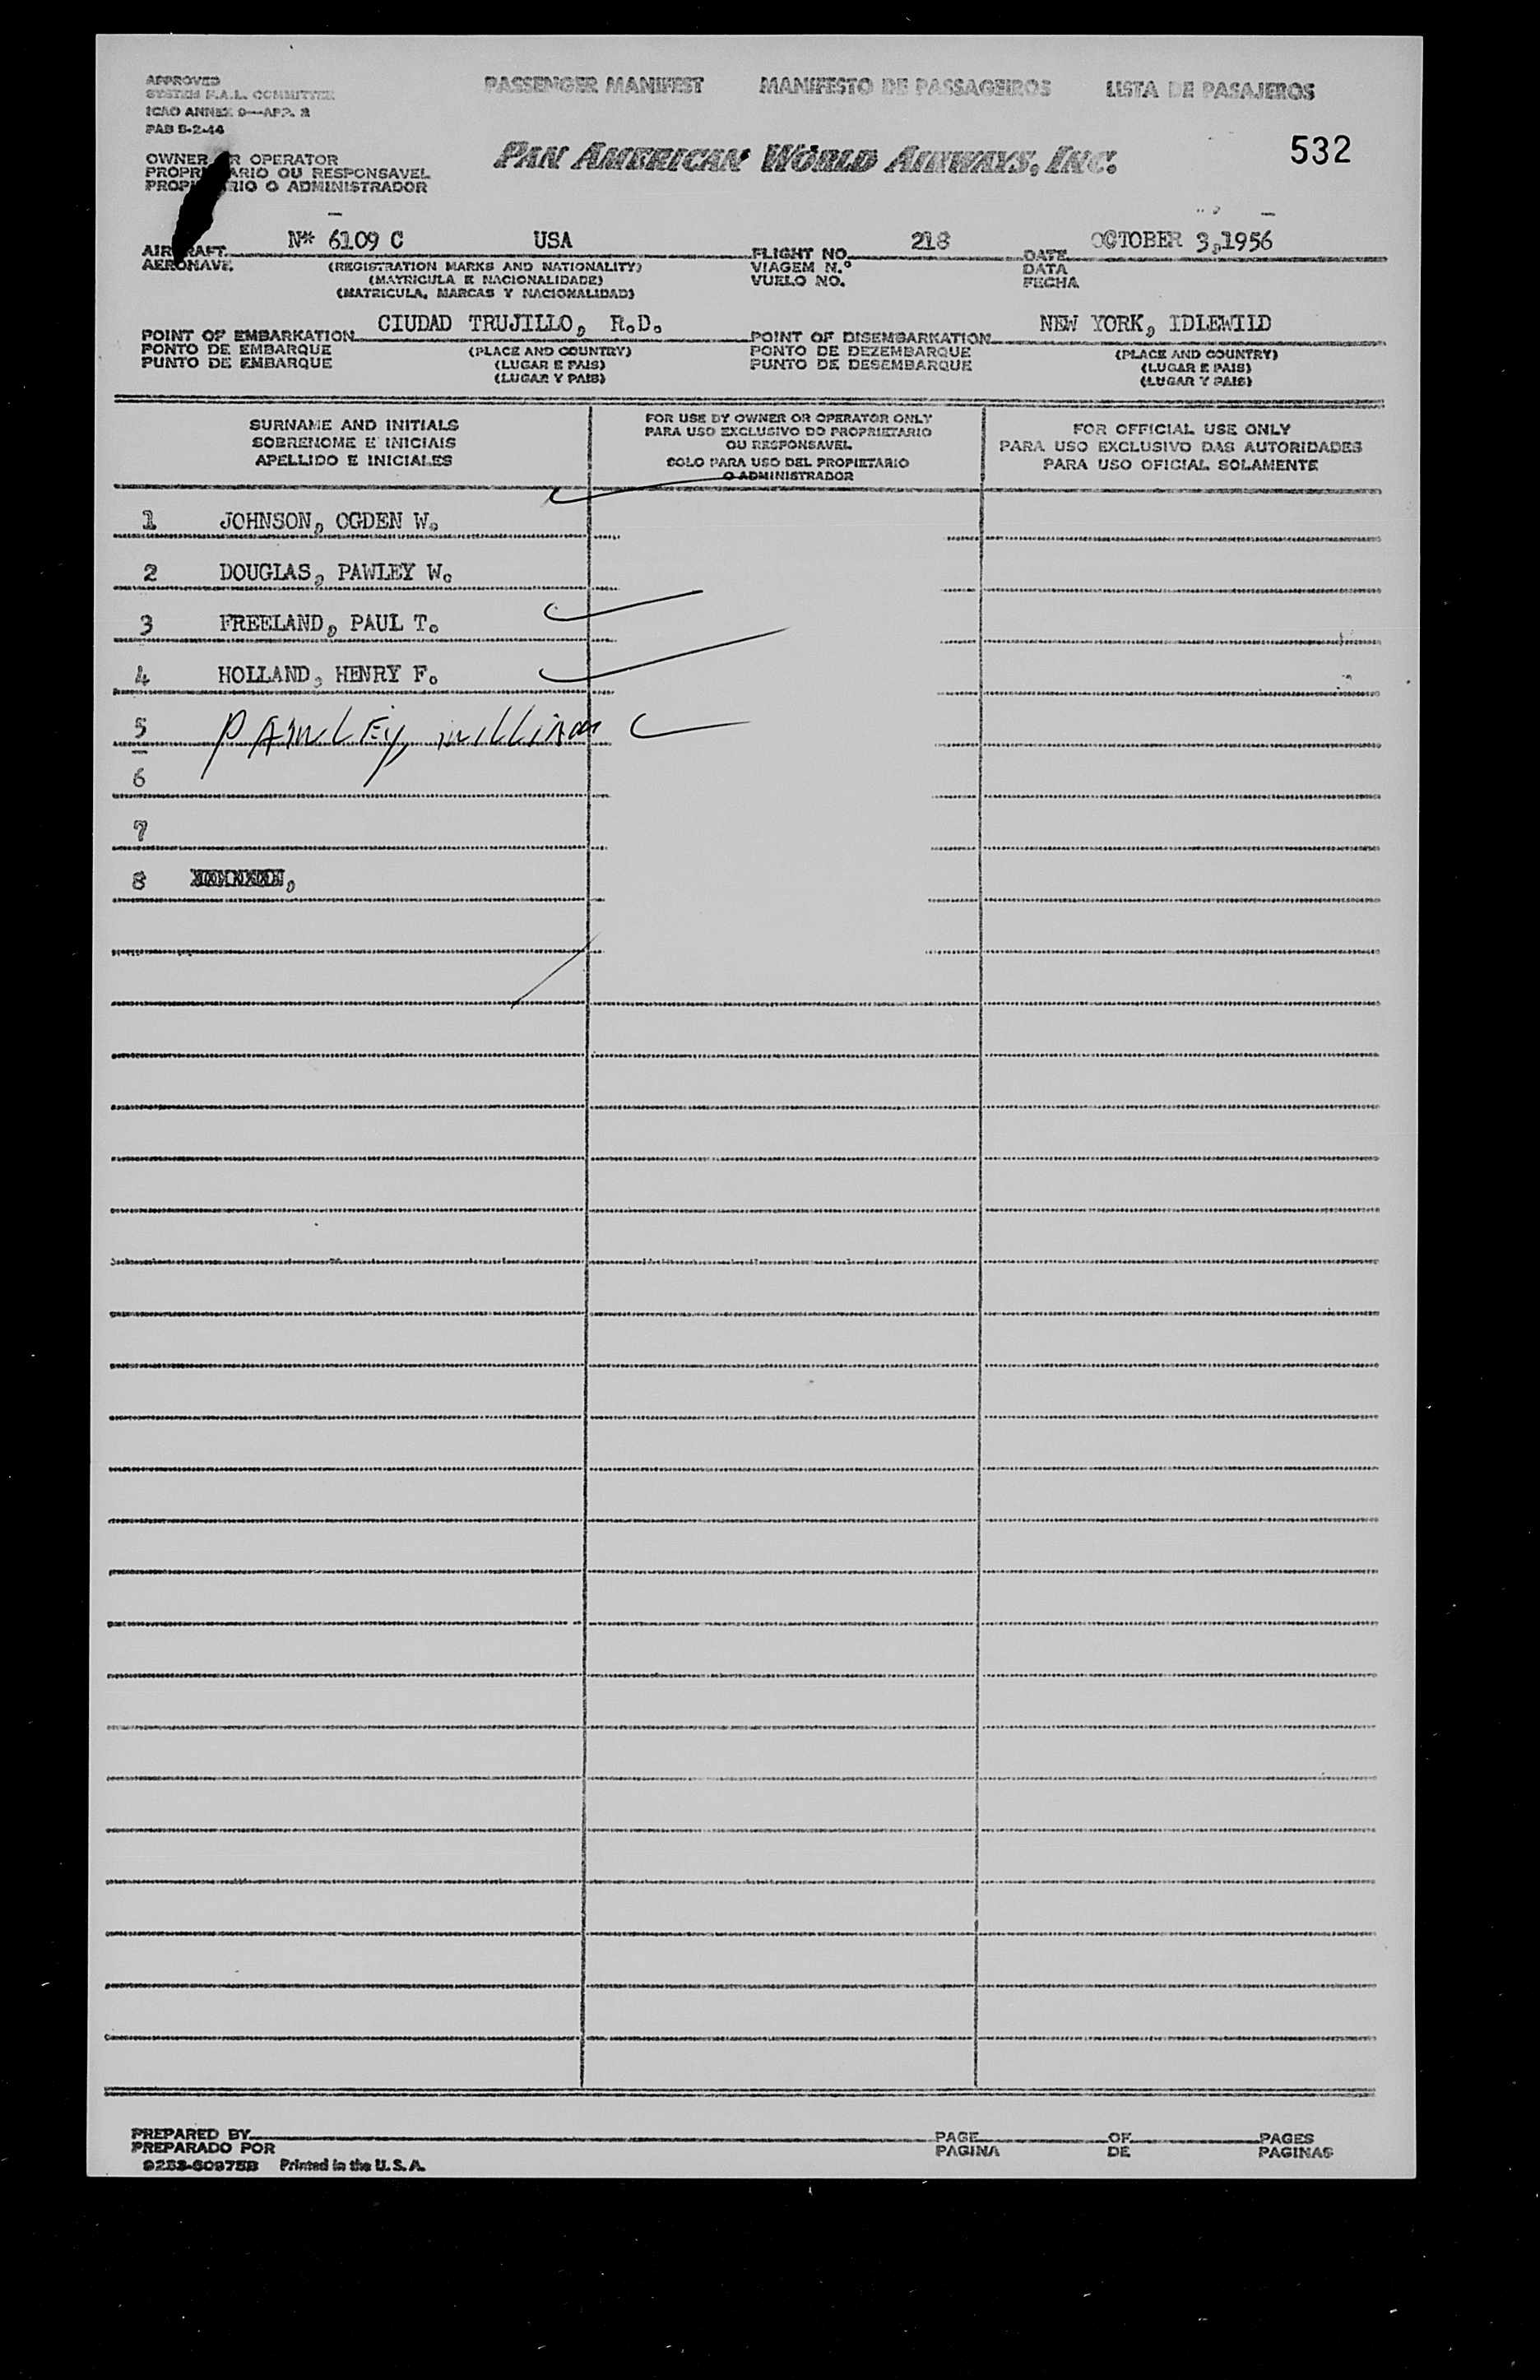 APPROVED
SYSTEM F.A.L. COMMITTEE
ICAO ANNEX 9—APP. 2
PAB 5-2-44
PASSENGER MANIFEST MANIFESTO DE PASSAGEIROS LISTA DE PASAJEROS
532
PAN AMERICAN WORLD AIRWAYS, INC.
OWNER OR OPERATOR
PROPRIETARIO OU RESPONSAVEL
PROPIETARIO O ADMINISTRADOR
AIRCRAFT N* 6109 C USA FLIGHT NO. 218 DATE OCTOBER 3,1956
AERONAVE. (REGISTRATION MARKS AND NATIONALITY) VIAGEM N.º DATA
(MATRICULA E NACIONALIDADE) VUELO NO. FECHA
(MATRICULA, MARCAS Y NACIONALIDAD)
POINT OF EMBARKATION CIUDAD TRUJILLO, R.D. POINT OF DISEMBARKATION NEW YORK, IDLEWILD
PONTO DE EMBARQUE (PLACE AND COUNTRY) PONTO DE DEZEMBARQUE (PLACE AND COUNTRY)
PUNTO DE EMBARQUE (LUGAR E PAIS) PUNTO DE DESEMBARQUE (LUGAR E PAIS)
(LUGAR Y PAIS) (LUGAR Y PAIS)
SURNAME AND INITIALS
SOBRENOME E INICIAIS
APELLIDO E INICIALES
FOR USE BY OWNER OR OPERATOR ONLY
PARA USO EXCLUSIVO DO PROPRIETARIO
OU RESPONSAVEL
SOLO PARA USO DEL PROPIETARIO
O ADMINISTRADOR
FOR OFFICIAL USE ONLY
PARA USO EXCLUSIVO DAS AUTORIDADES
PARA USO OFICIAL SOLAMENTE
1 JOHNSON, OGDEN W.
2 DOUGLAS, PAWLEY W.
3 FREELAND, PAUL T.
4 HOLLAND, HENRY F.
5 PAWLEY, William
6
7
8
PREPARED BY PAGE OF PAGES
PREPARADO POR PAGINA DE PAGINAS
9253-50975B Printed in the U.S.A.